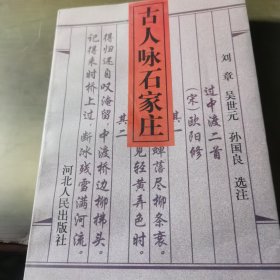 古人咏石家庄
刘 章 吴世元 孙国良 选注
过中渡二首
(宋)欧阳修
蝉落尽柳条衰。
见轻黄弄色时。
其二
得归还自叹淹留,中渡桥边柳拂头。
记得来时桥上过,断冰残雪满河流。
河北人民出版社